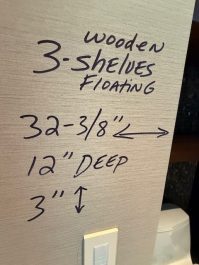 wooden
3-SHELVES
FLOATING
32-3/8" ↔
12" DEEP
3" ↕